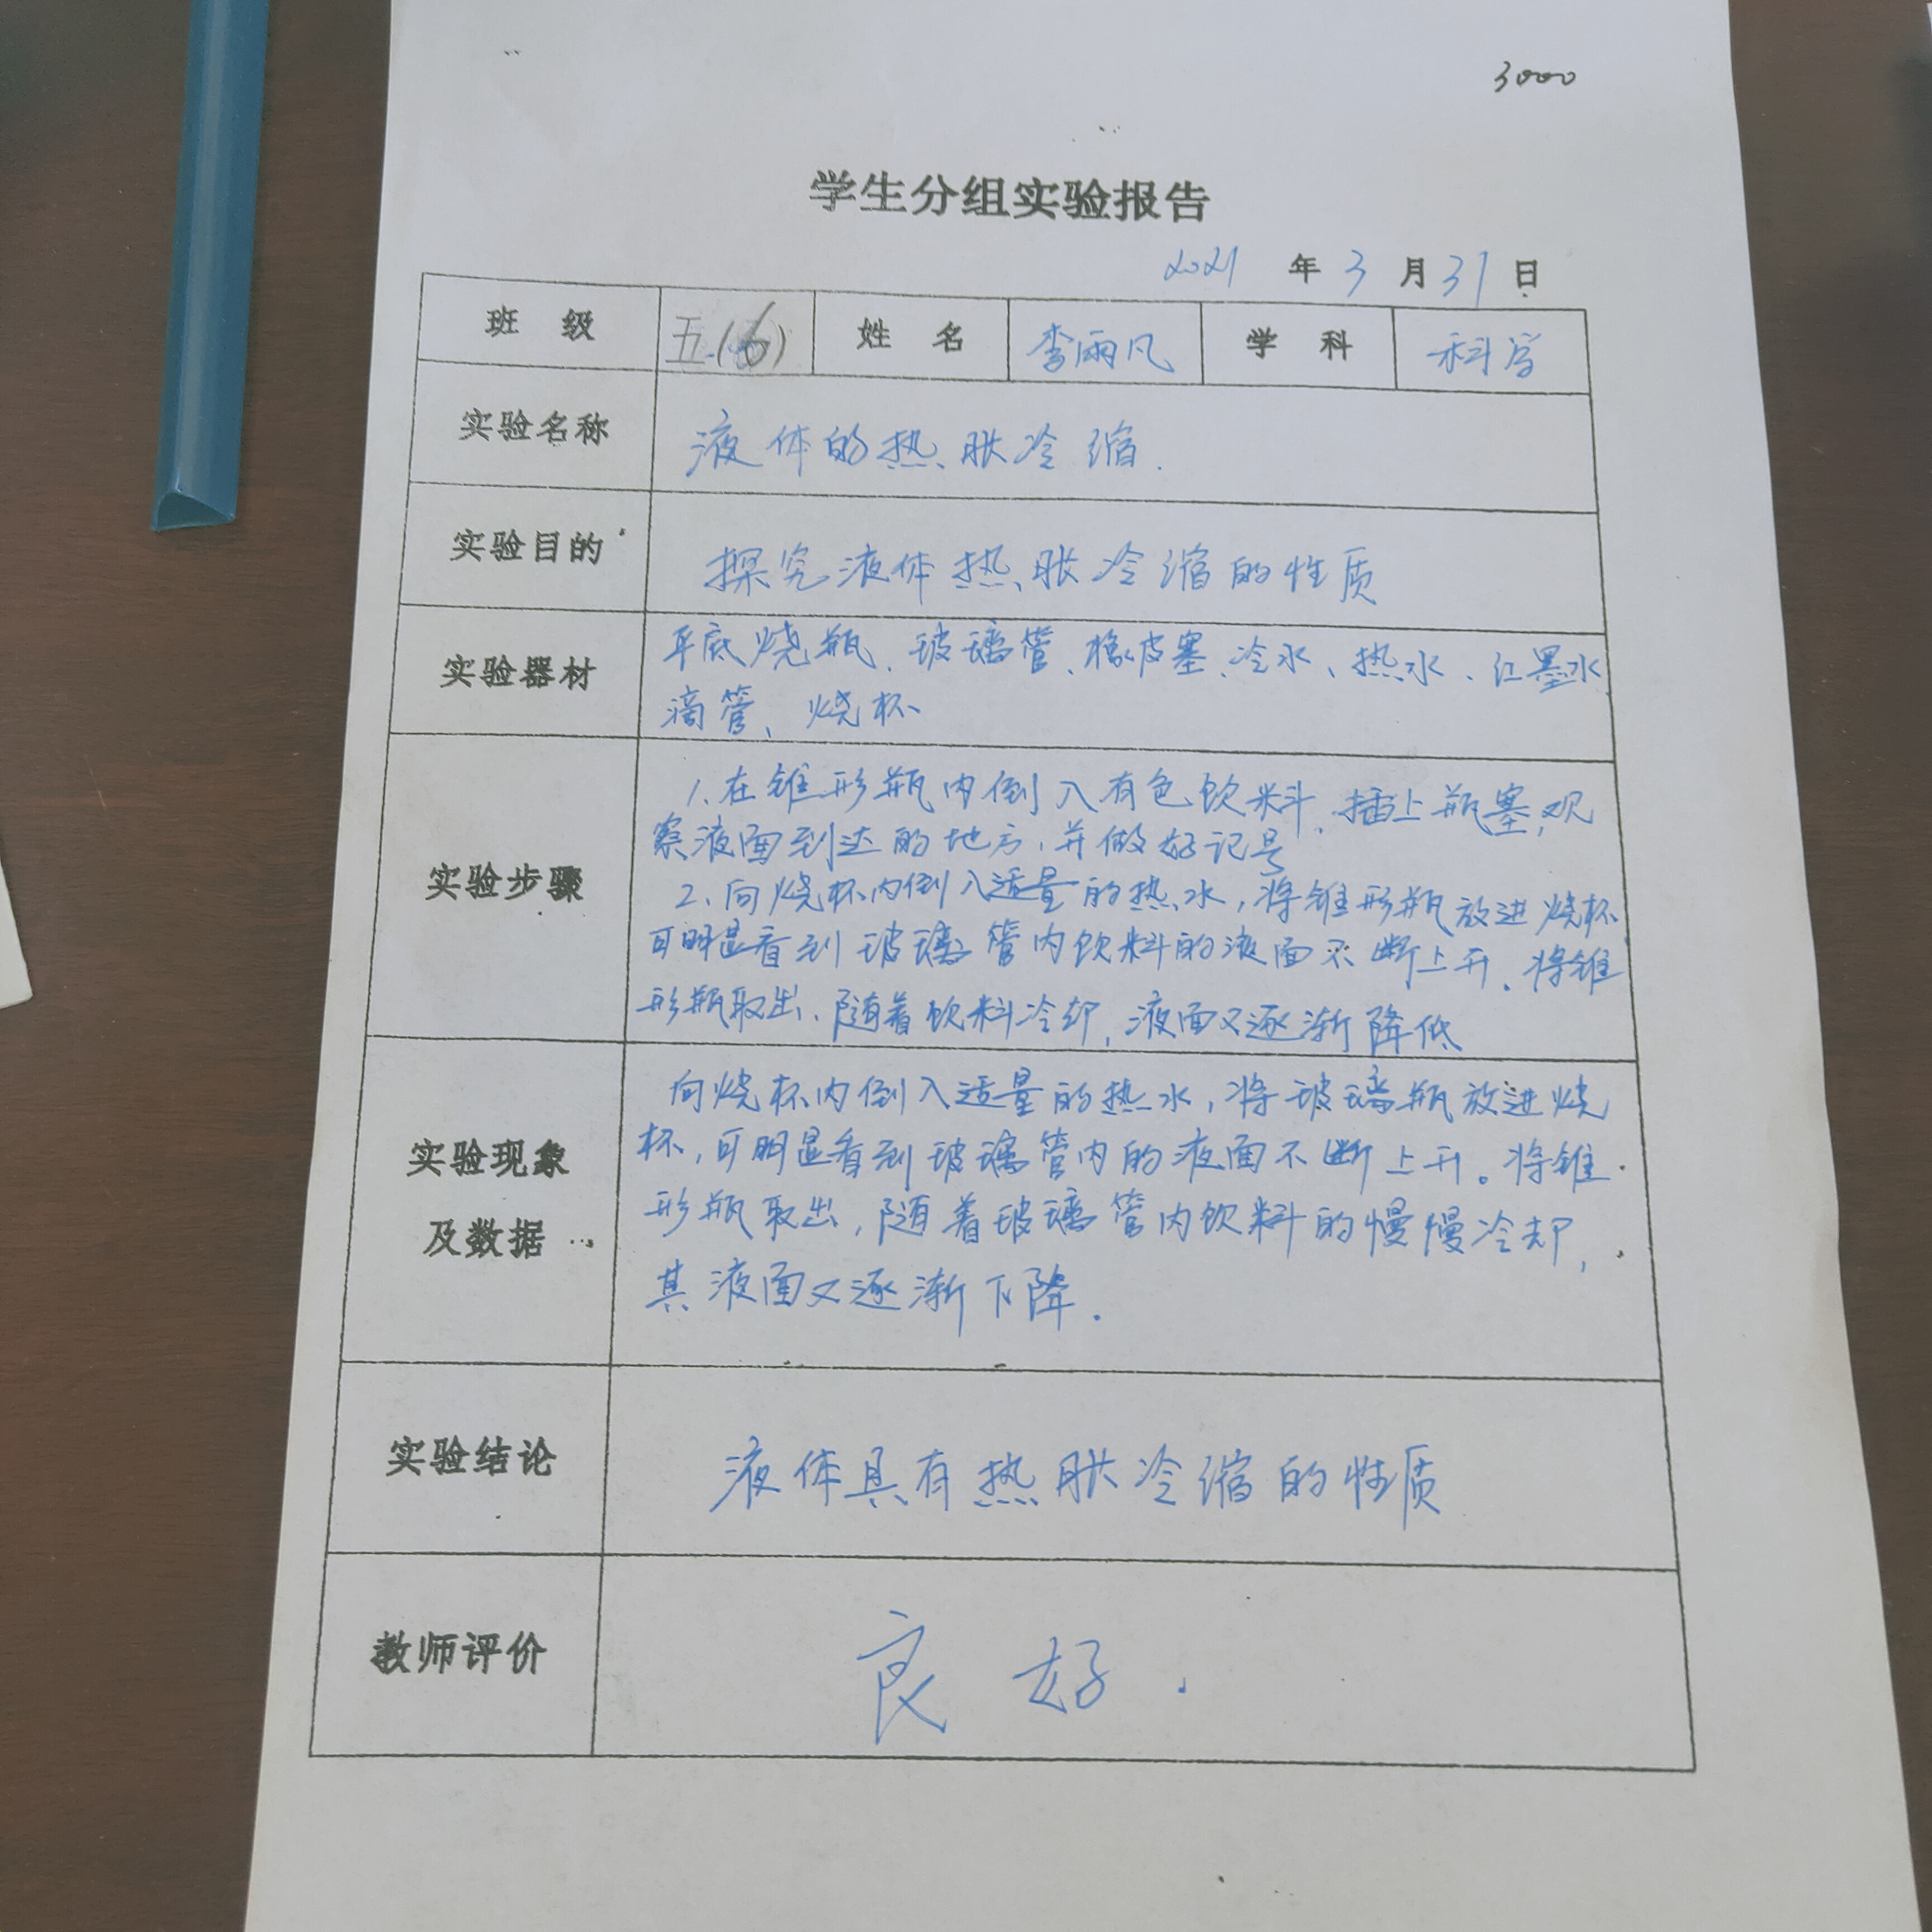 3000
学生分组实验报告
2021 年 3 月 31 日
班 级 五(6) 姓 名 李雨凡 学 科 科学
实验名称 液体的热胀冷缩.
实验目的 探究液体热胀冷缩的性质
实验器材
平底烧瓶、玻璃管、橡皮塞、冷水、热水、红墨水、
滴管、烧杯
实验步骤
1、在锥形瓶内倒入有色饮料,插上瓶塞,观
察液面到达的地方,并做好记号
2、向烧杯内倒入适量的热水,将锥形瓶放进烧杯,
可明显看到玻璃管内饮料的液面不断上升。将锥
形瓶取出、随着饮料冷却,液面又逐渐降低
实验现象
及数据
向烧杯内倒入适量的热水,将玻璃瓶放进烧
杯,可明显看到玻璃管内的液面不断上升。将锥
形瓶取出,随着玻璃管内饮料的慢慢冷却,
其液面又逐渐下降.
实验结论 液体具有热胀冷缩的性质
教师评价 良好.